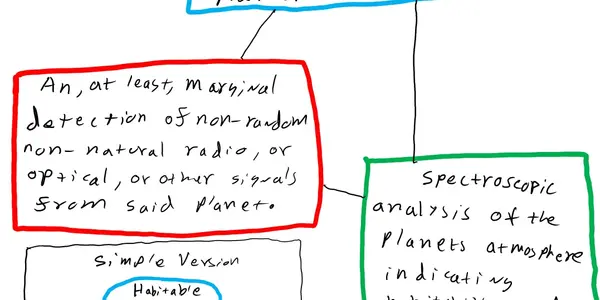 An, at least, marginal
detection of non-random
non-natural radio, or
optical, or other signals
from said planet.
Spectroscopic
analysis of the
planets atmosphere
indicating
Simple Version
Habitable